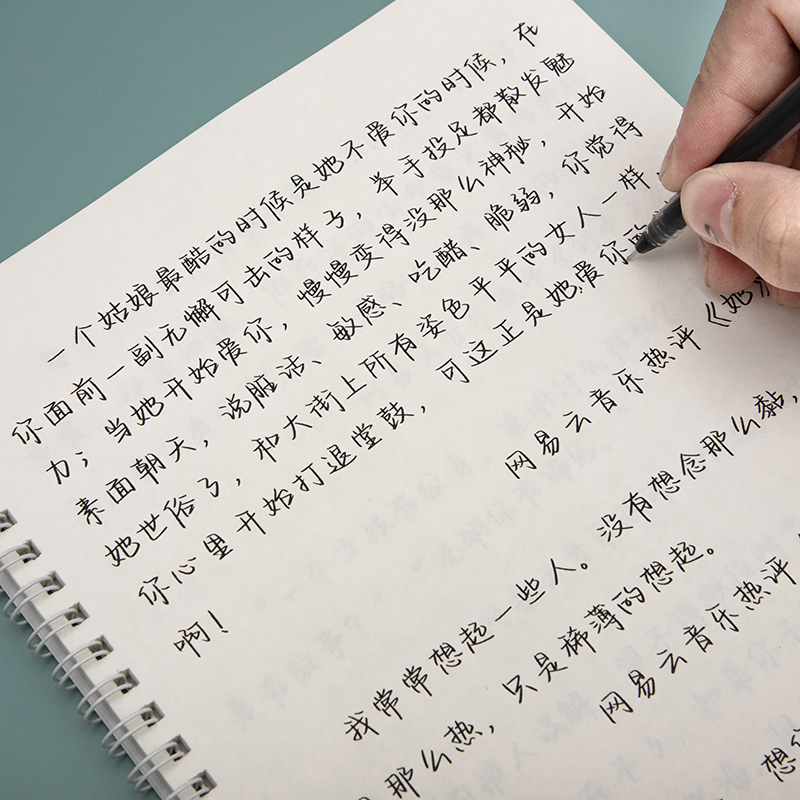 一个姑娘最酷的时候是她不爱你的时候，在
你面前一副无懈可击的样子，举手投足都散发魅
力；当她开始爱你，慢慢变得没那么神秘，开始
素面朝天，说脏话、敏感、吃醋、脆弱，你觉得
她世俗了，和大街上所有姿色平平的女人一样，
你心里开始打退堂鼓，可这正是她爱你的
啊！
网易云音乐热评《她
我常常想起一些人。没有想念那么黏，
那么热，只是稀薄的想起。
网易云音乐热评
想